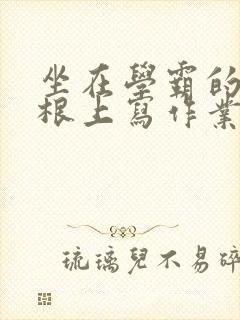 坐在學霸的
根上寫作業
琉璃兒不易碎